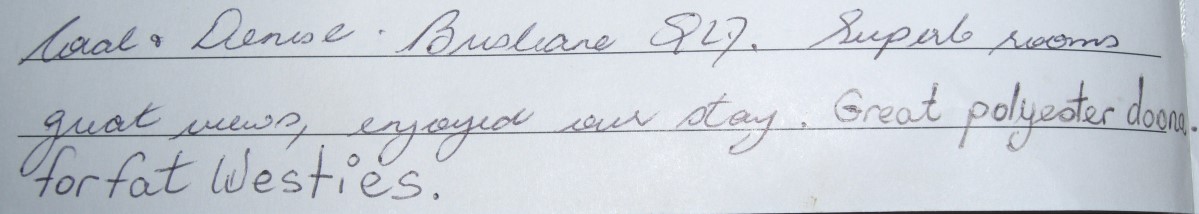 & Denise. Brisbane QLD. Superb rooms
great views, enjoyed our stay. Great polyester doona.
for fat Westies.